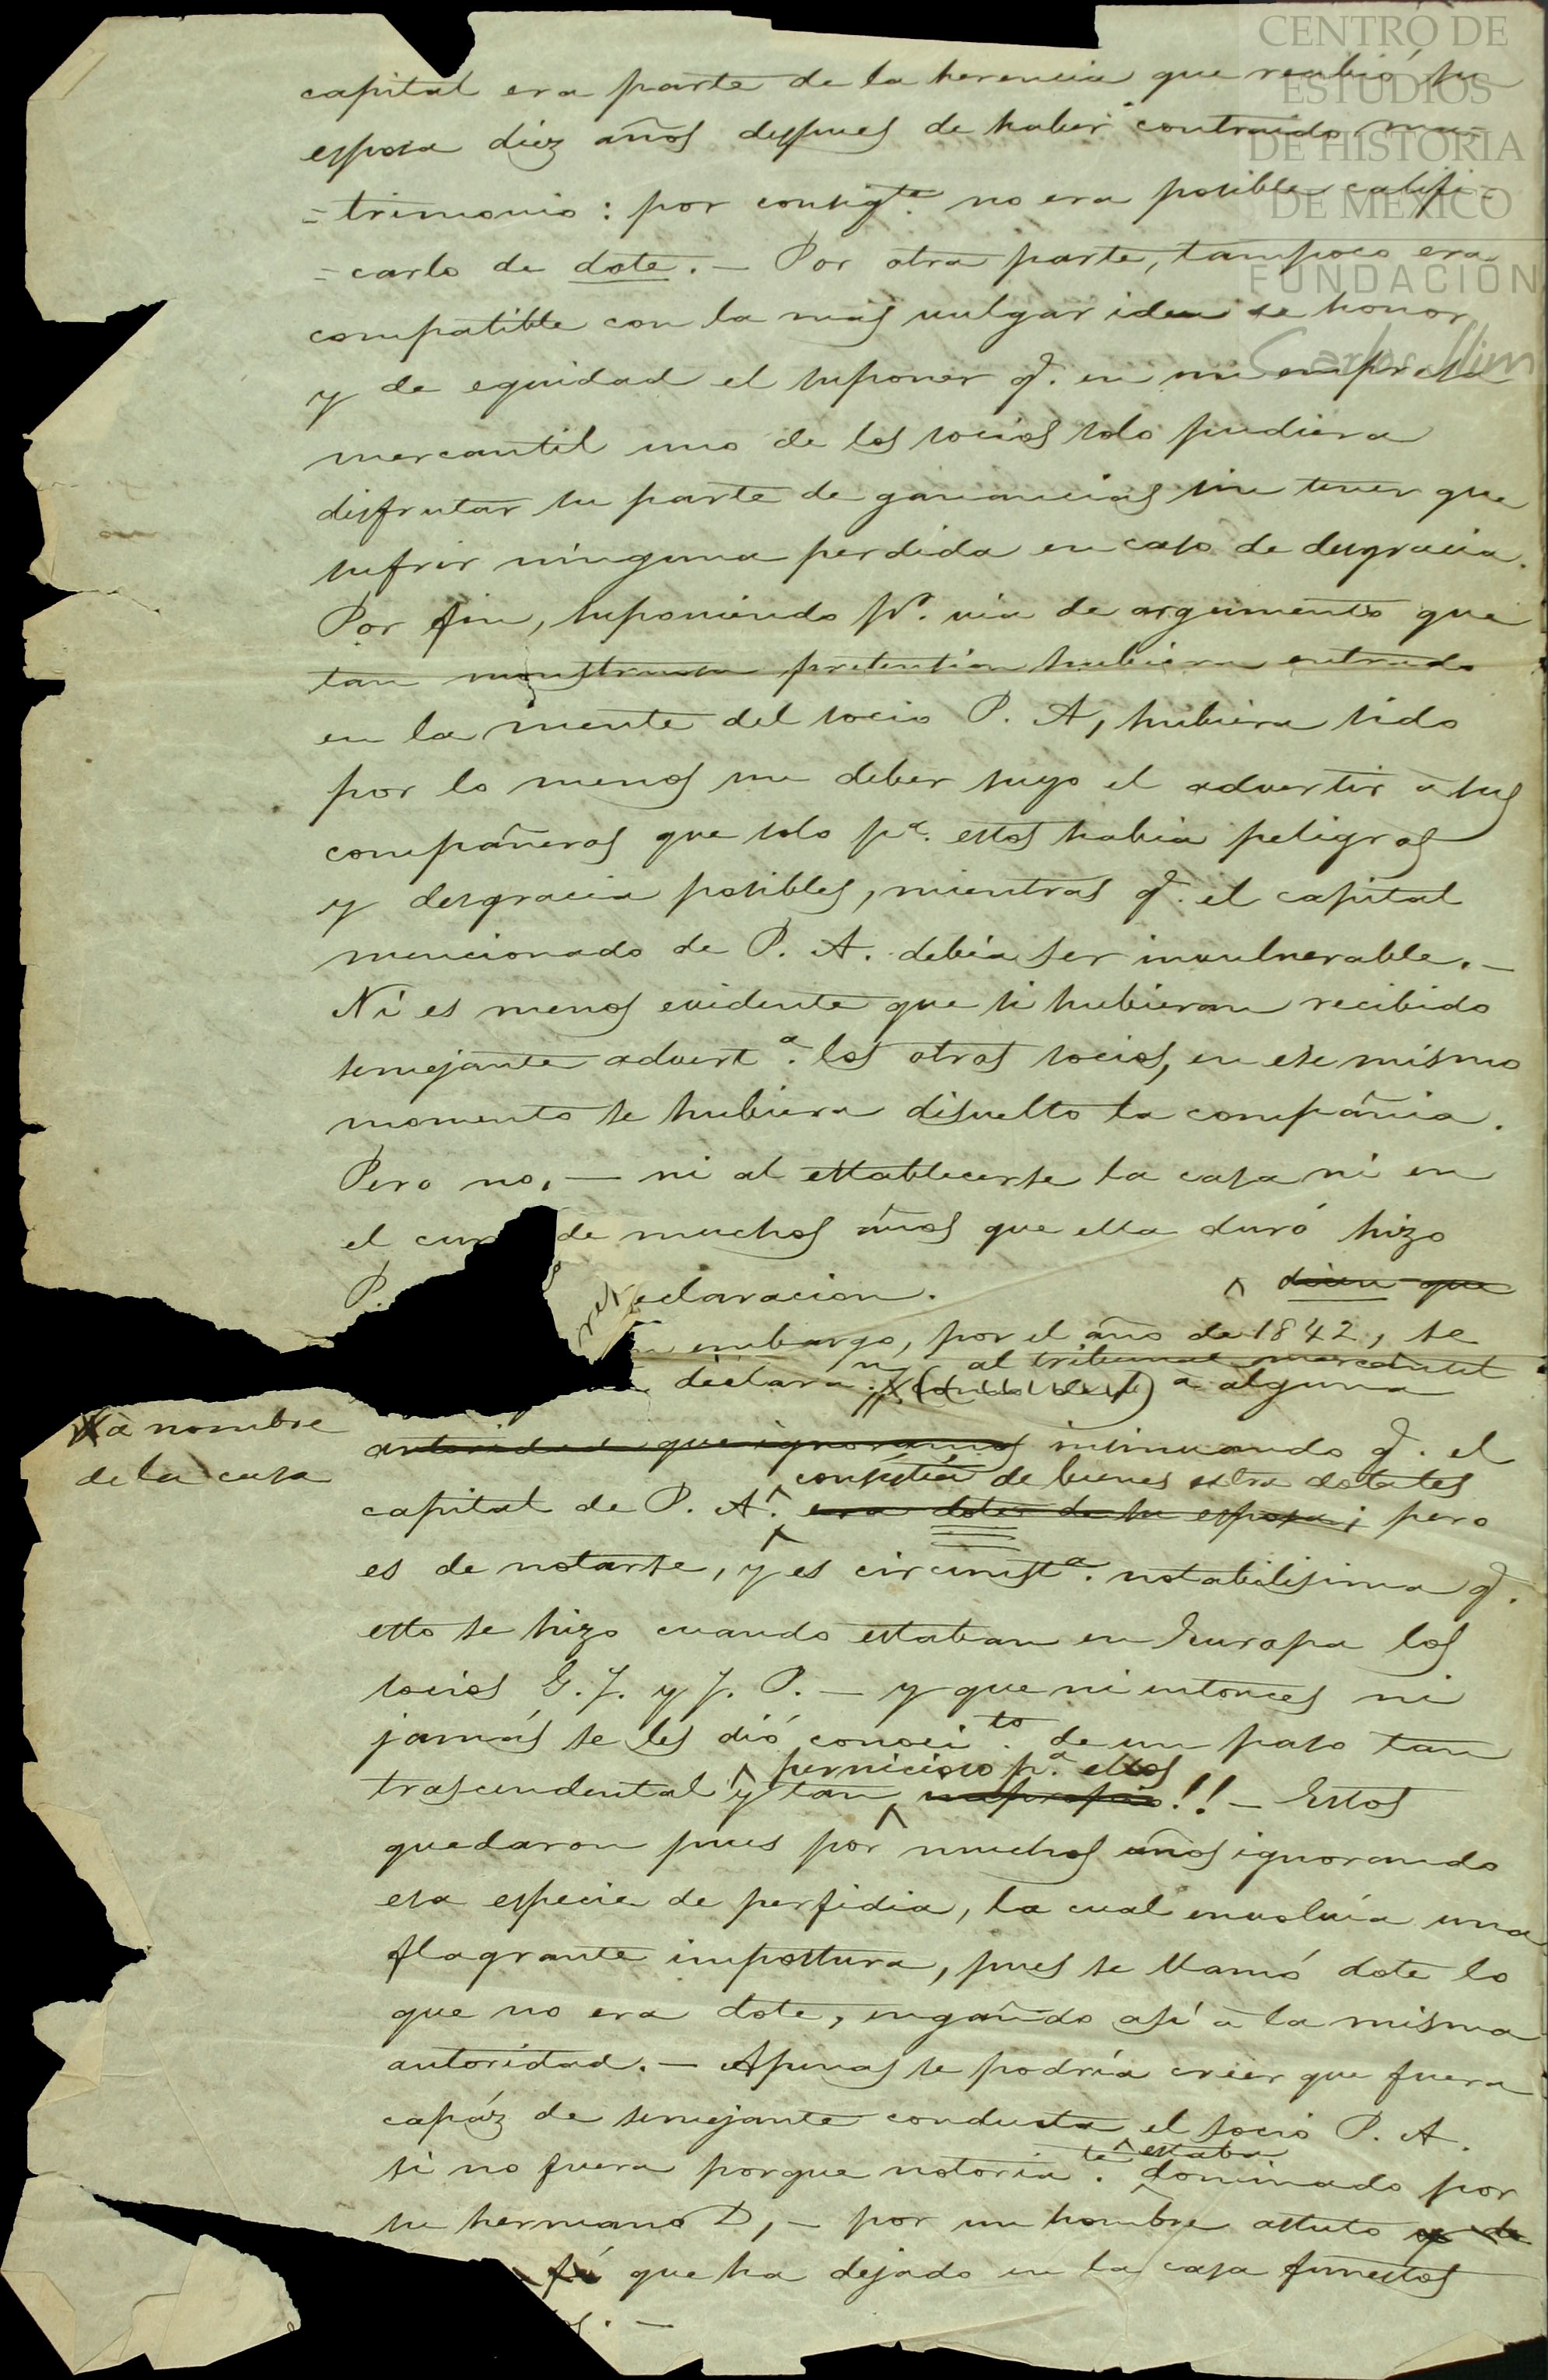 CENTRO DE
ESTUDIOS
DE HISTORIA
DE MÉXICO
FUNDACIÓN
Carlos Slim
capital era parte de la herencia que recibió su
esposa diez años despues de haber contraido ma-
=trimonio: por consigte. no era posible califi-
=carlo de dote. — Por otra parte, tampoco era
compatible con la mas vulgar idea de honor
y de equidad el suponer q. en una empresa
mercantil uno de los socios solo pudiera
disfrutar su parte de ganancias sin tener que
sufrir ninguna perdida en caso de desgracia.
Por fin, suponiendo pr. via de argumento que
tan monstruosa pretension hubiera entrado
en la mente del socio P. A, hubiera sido
por lo menos un deber suyo el advertir a sus
compañeros que solo pa. estos habia peligros
y desgracia posibles, mientras q. el capital
mencionado de P. A. debia ser invulnerable. —
Ni es menos evidente que si hubieran recibido
semejante adverta. los otros socios, en ese mismo
momento se hubiera disuelto la compañia.
Pero no, — ni al establecerse la casa ni en
el cur de muchos años que ella duró hizo
P. eclaracion. dicen que
embargo, por el año de 1842, se
al tribunal mercantil
declaran. a alguna
X a nombre
de la casa
autoridad que ignoramos insinuando q. el
consistía de bienes extra dotales
capital de P. A. era dote de su esposa; pero
es de notarse, y es circunsta. notabilisima q.
esto se hizo cuando estaban en Europa los
socios G. J. y J. P. — y que ni entonces ni
jamás se les dió conocito. de un paso tan
pernicioso pa. ellos
trascendental y tan !! — Estos
quedaron pues por muchos años ignorando
esa especie de perfidia, la cual envolvia una
flagrante impostura, pues se llamó dote lo
que no era dote, engañdo asi a la misma
autoridad. — Apenas se podría creer que fuera
capáz de semejante conducta el socio P. A.
estaba
si no fuera porque notoriate. dominado por
su hermano D, — por un hombre astuto y de
fé que ha dejado en la casa funestos